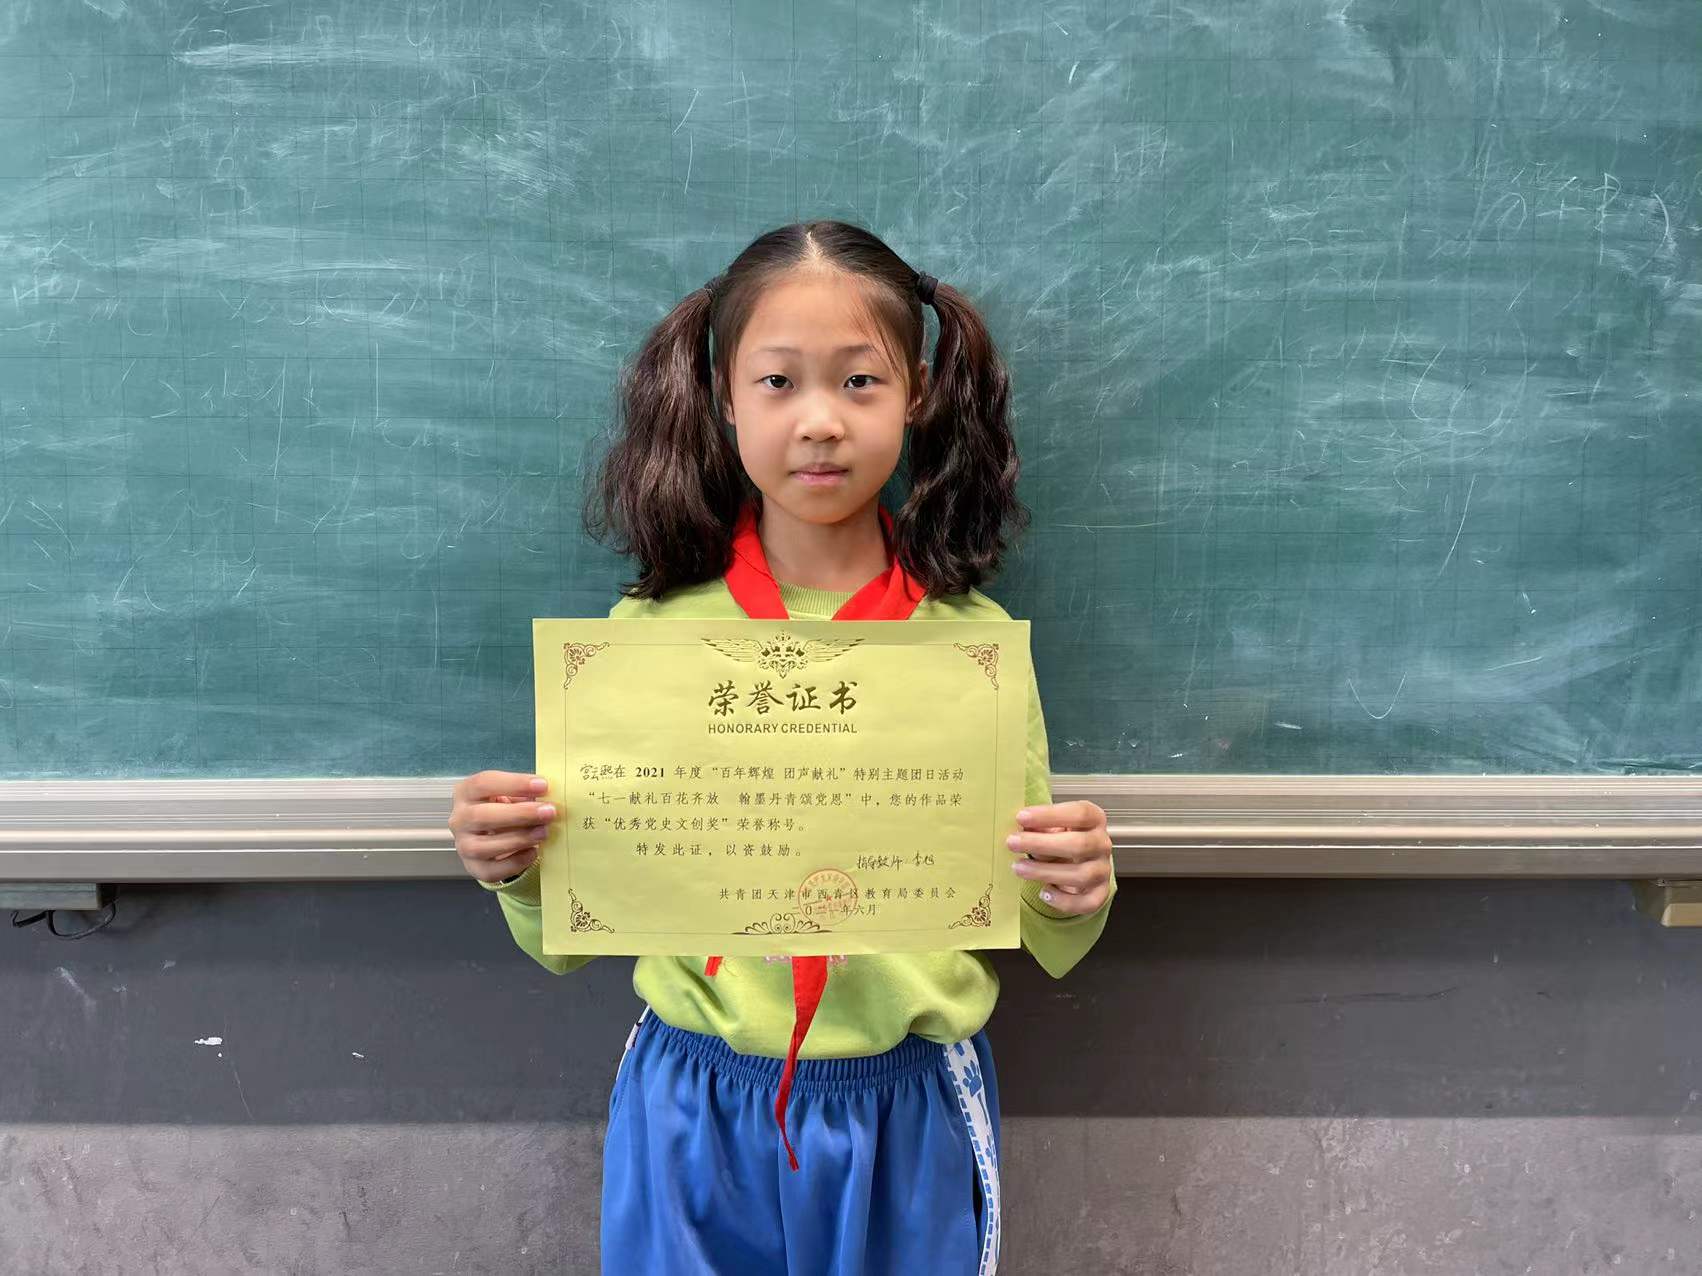 荣誉证书
HONORARY CREDENTIAL
宫云熙在 2021 年度“百年辉煌 团声献礼”特别主题团日活动
“七一献礼百花齐放 翰墨丹青颂党恩”中，您的作品荣
获“优秀党史文创奖”荣誉称号。
特发此证，以资鼓励。
指导教师：李旭
共青团天津市西青区教育局委员会
二〇二一年六月